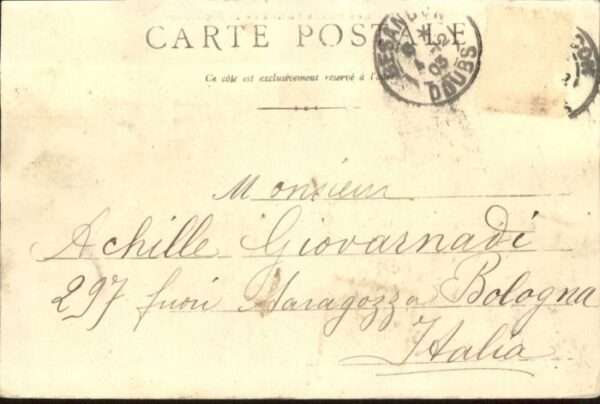 CARTE POSTALE
Ce côté est exclusivement réservé à l'
BESANÇON
DOUBS
Monsieur
Achille Giovarnadi
297 fuori Saragozza Bologna
Italia